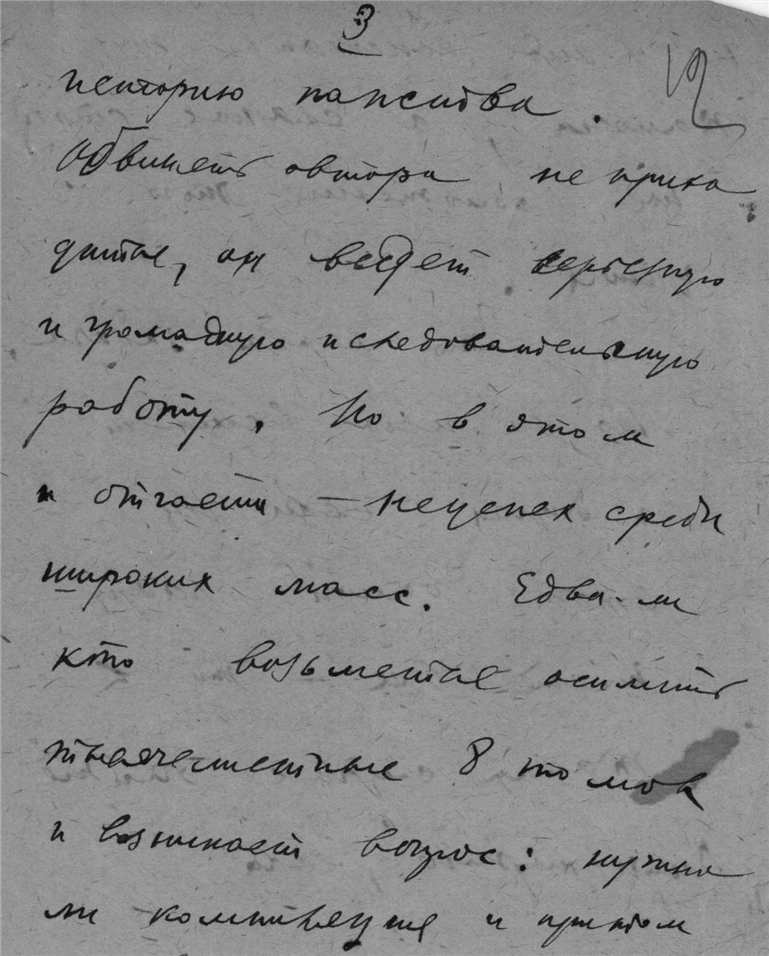 3
12
историю папства.
Обвинять автора не прихо
дится, он ведет серьезную
и громадную исследовательскую
работу. Но в этом
и отчасти — неуспех среди
широких масс. Едва-ли
кто возьмется осилить
тысячелистные 8 томов
и возникает вопрос: нужна
ли компиляция и притом